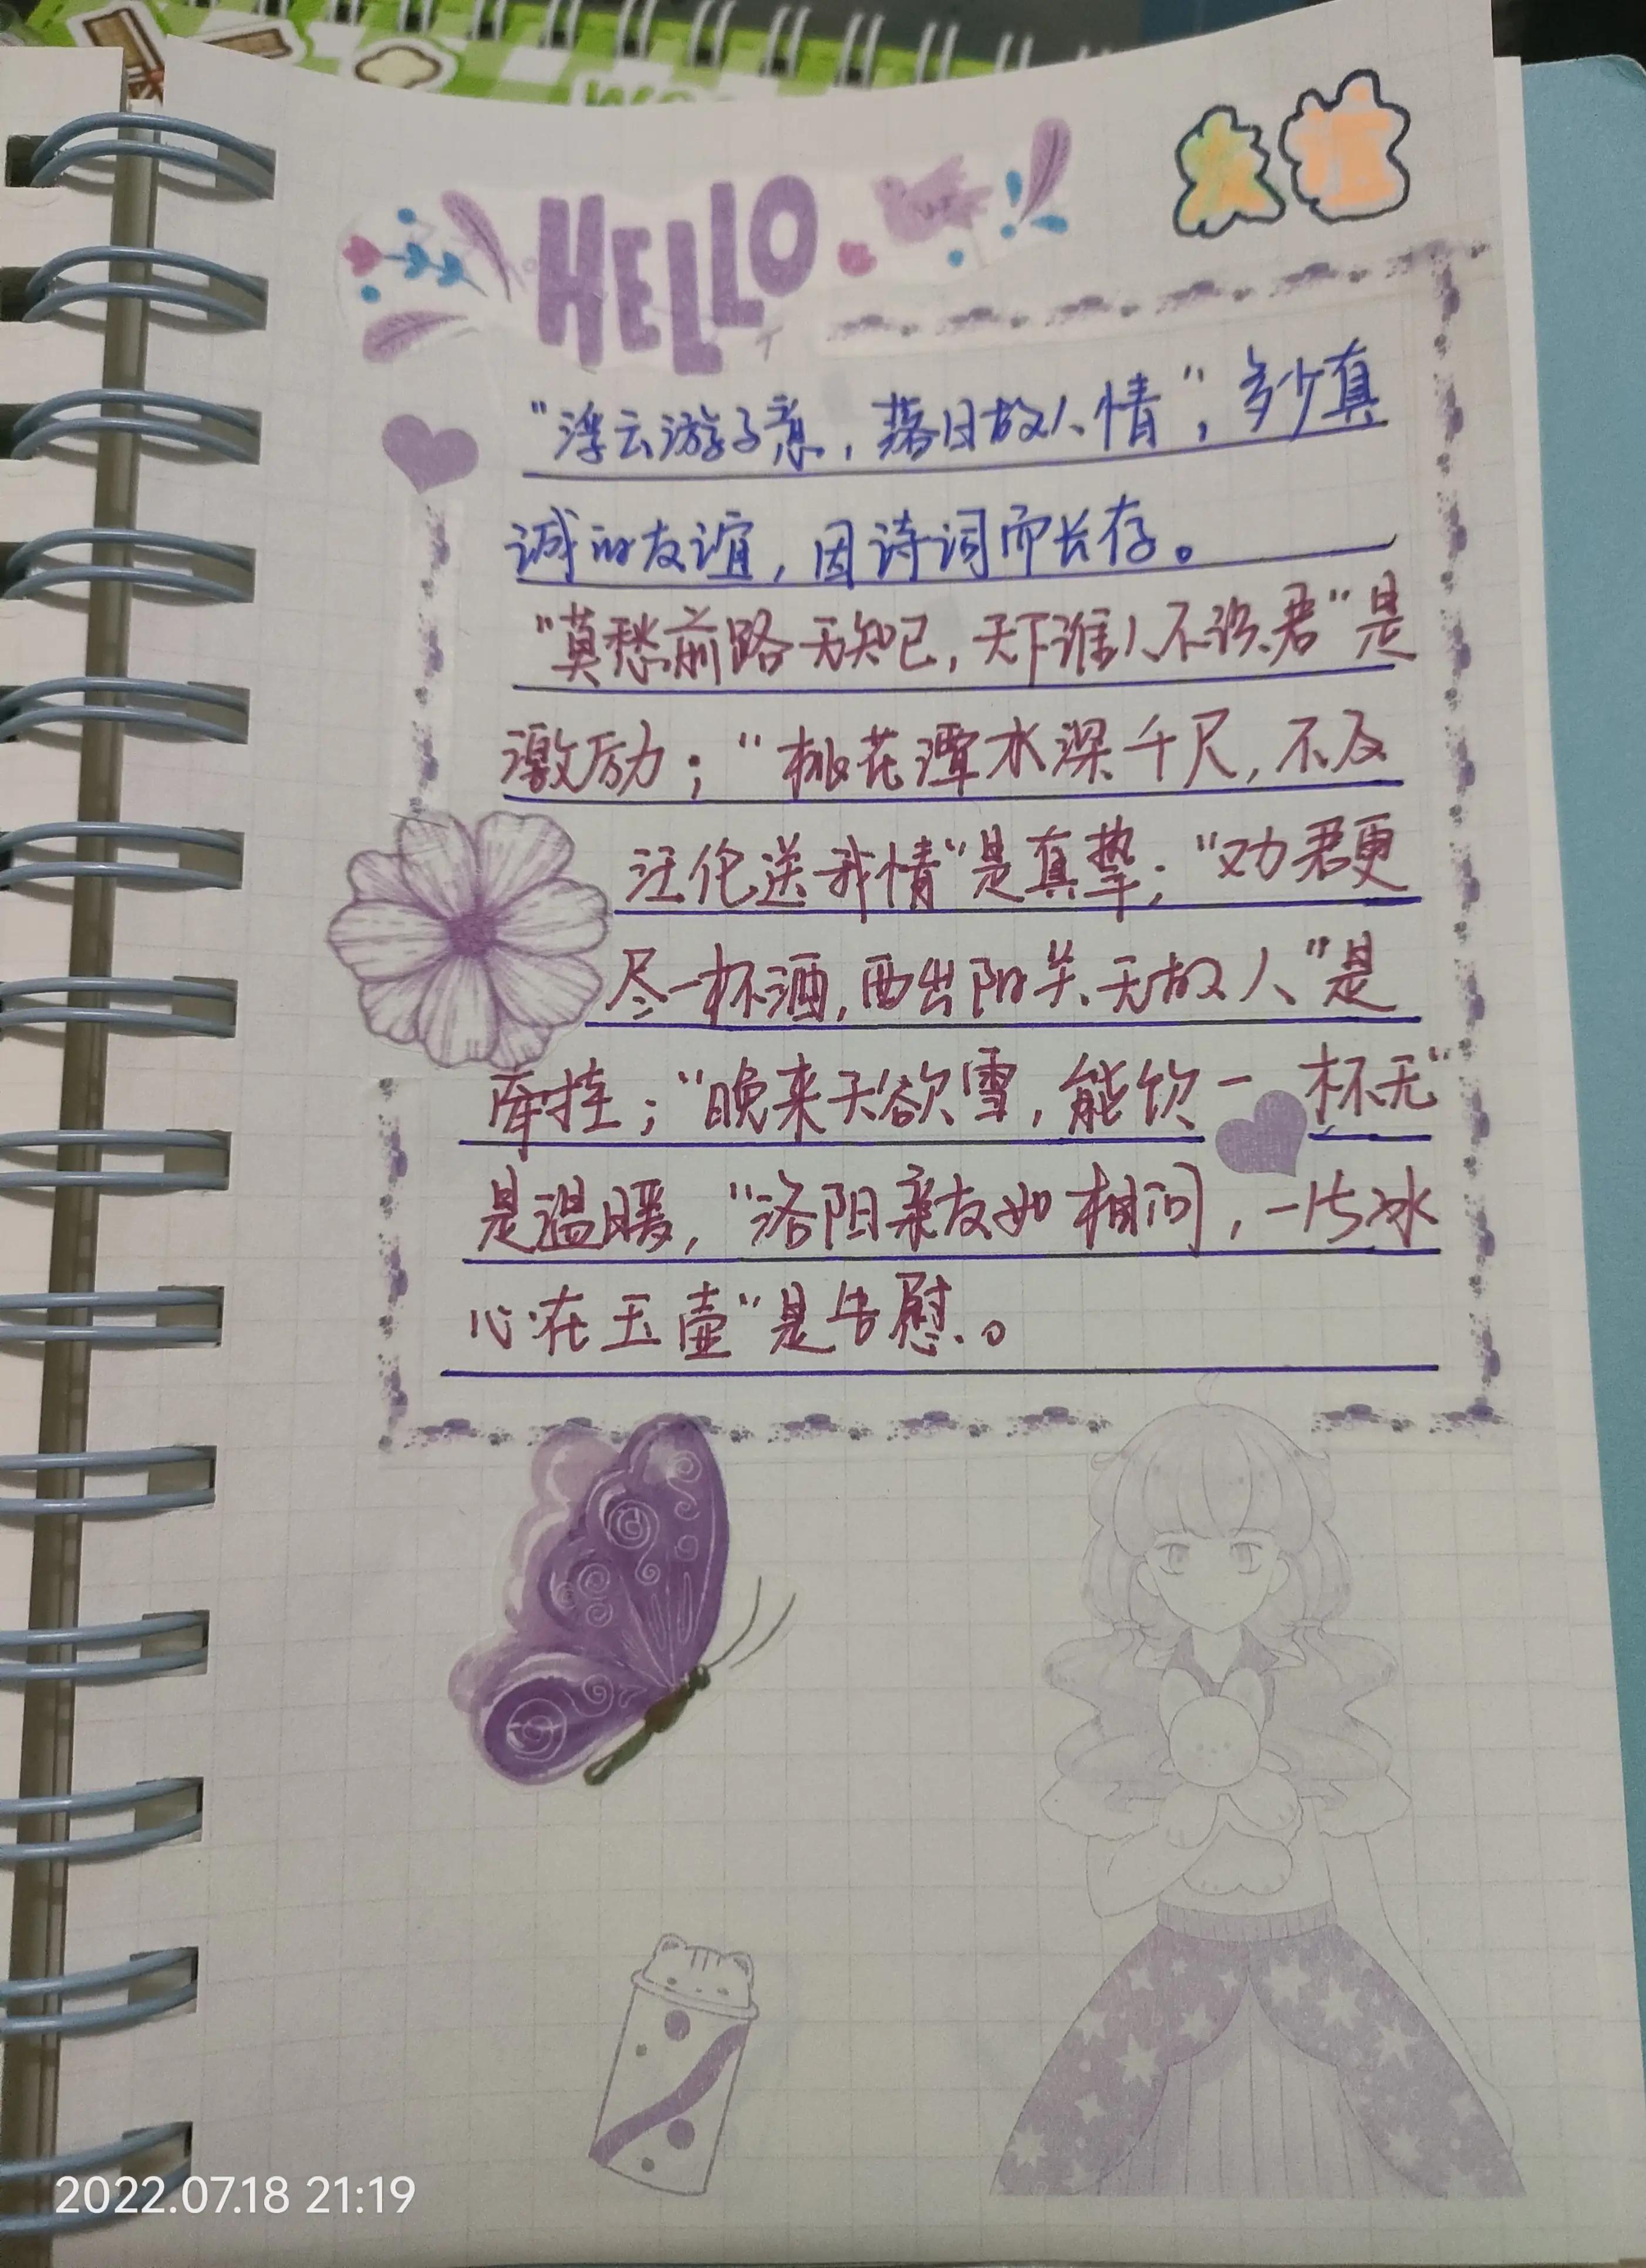 友谊
HELLO
"浮云游子意，落日故人情"，多少真
诚的友谊，因诗词而长存。
"莫愁前路无知己，天下谁人不识君"是
激励；"桃花潭水深千尺，不及
汪伦送我情"是真挚；"劝君更
尽一杯酒，西出阳关无故人"是
牵挂；"晚来天欲雪，能饮一杯无"
是温暖，"洛阳亲友如相问，一片冰
心在玉壶"是告慰。
2022.07.18 21:19